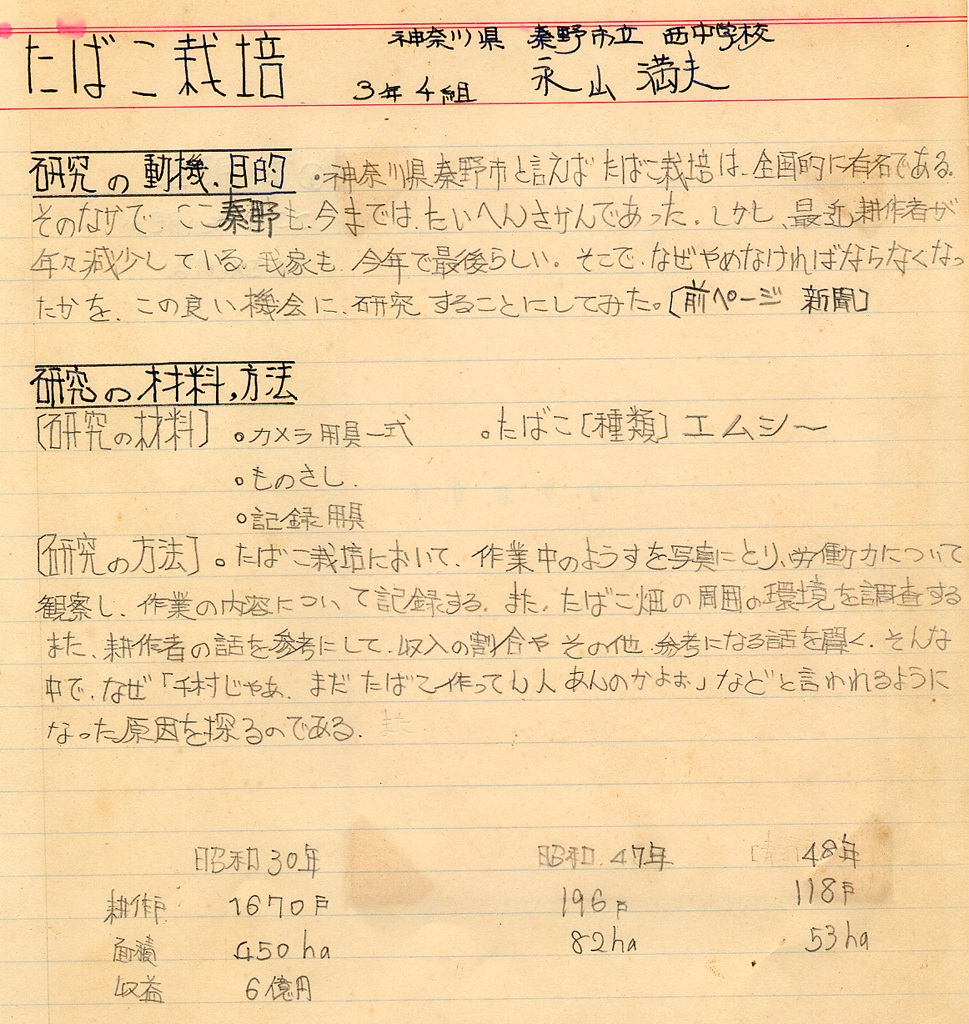 たばこ栽培
神奈川県 秦野市立 西中学校
3年4組 永山 満夫
研究の動機、目的 ・神奈川県秦野市と言えば たばこ栽培は、全国的に有名である。
そのなかで、ここ秦野も、今までは、たいへんさかんであった。しかし、最近耕作者が
年々減少している。我家も、今年で最後らしい。そこで、なぜやめなければならなくなっ
たかを、この良い機会に、研究することにしてみた。〔前ページ 新聞〕
研究の材料,方法
〔研究の材料〕 ◦カメラ用具一式 ◦たばこ〔種類〕エムシー
◦ものさし.
◦記録用具
〔研究の方法〕◦たばこ栽培において、作業中のようすを写真にとり、労働力について
観察し、作業の内容について記録する。また、たばこ畑の周囲の環境を調査する
また、耕作者の話を参考にして、収入の割合や その他、参考になる話を聞く。そんな
中で、なぜ「千村じゃあ、まだ たばこ作ってん人 あんのかよお」などと言われるように
なった原因を探るのである. また
昭和30年 昭和.47年 48年
耕作戸 1670戸 196戸 118戸
面積 450ha 82ha 53ha
収益 6億円